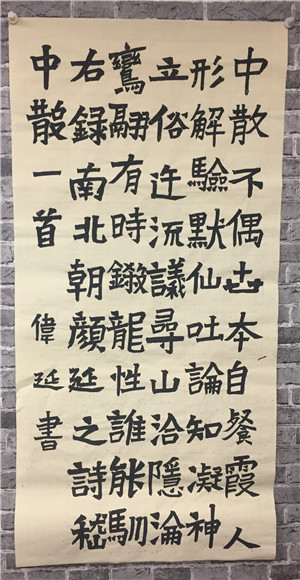 中散不偶世本自餐霞人
形解驗默仙吐論知凝神
立俗迕流議尋山洽隱淪
鸞翮有時鎩龍性誰能馴
右錄南北朝顏延之詩嵇
中散一首 偉延書